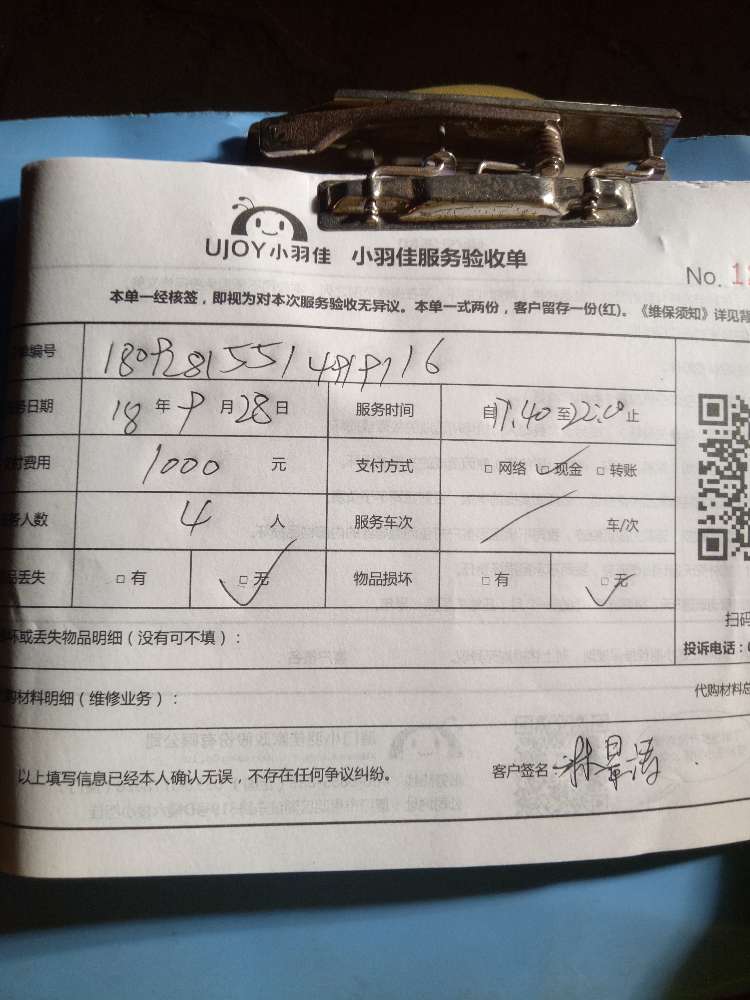 UJOY小羽佳 小羽佳服务验收单
No. 1
本单一经核签，即视为对本次服务验收无异议。本单一式两份，客户留存一份(红)。《维保须知》详见背
单编号
务日期 18 年 9 月 28 日 服务时间 自17.40至22.00止
付费用 1000 元 支付方式 □ 网络 ☑ 现金 □ 转账
务人数 4 人 服务车次 / 车/次
品丢失 □ 有 ☑ 无 物品损坏 □ 有 ☑ 无
扫码
坏或丢失物品明细（没有可不填）：
投诉电话：0
购材料明细（维修业务）：
代购材料总
以上填写信息已经本人确认无误，不存在任何争议纠纷。 客户签名：